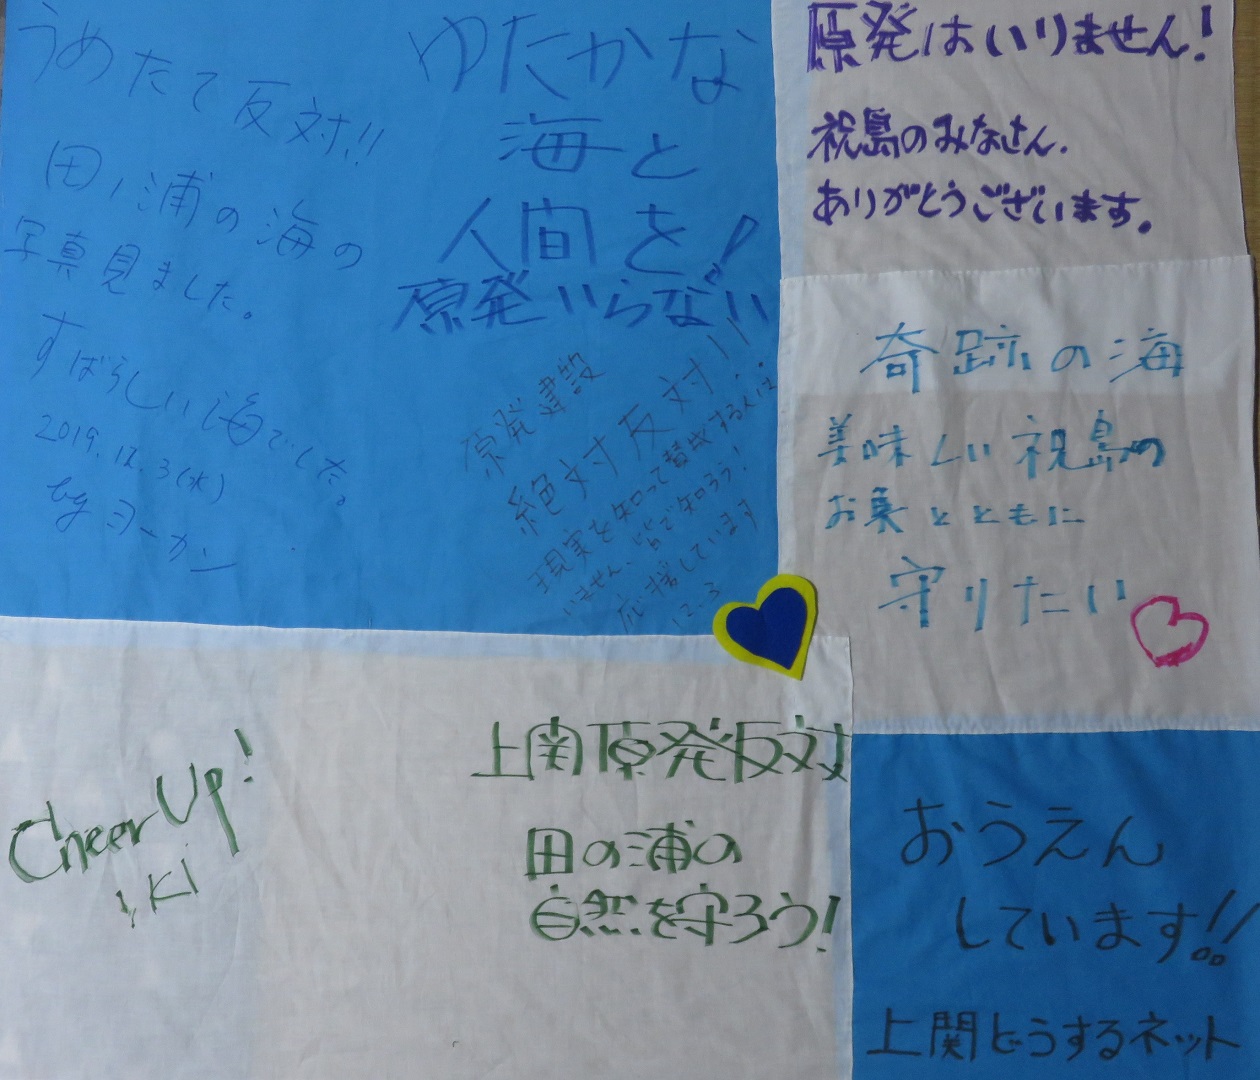 うめたて反対!!
田ノ浦の海の
写真見ました。
すばらしい海でした。
2019.12.3(水)
by ヨーカン
ゆたかな
海と
人間を!
原発いらない
原発建設
絶対反対!!
現実を知って賛成する人は
いません、皆で知ろう!
応援しています
12.3
原発はいりません!
祝島のみなさん.
ありがとうございます。
奇跡の海
美味しい祝島の
お魚とともに
守りたい
Cheer Up!
上関原発反対
田の浦の
自然を守ろう!
おうえん
しています!!
上関どうするネット